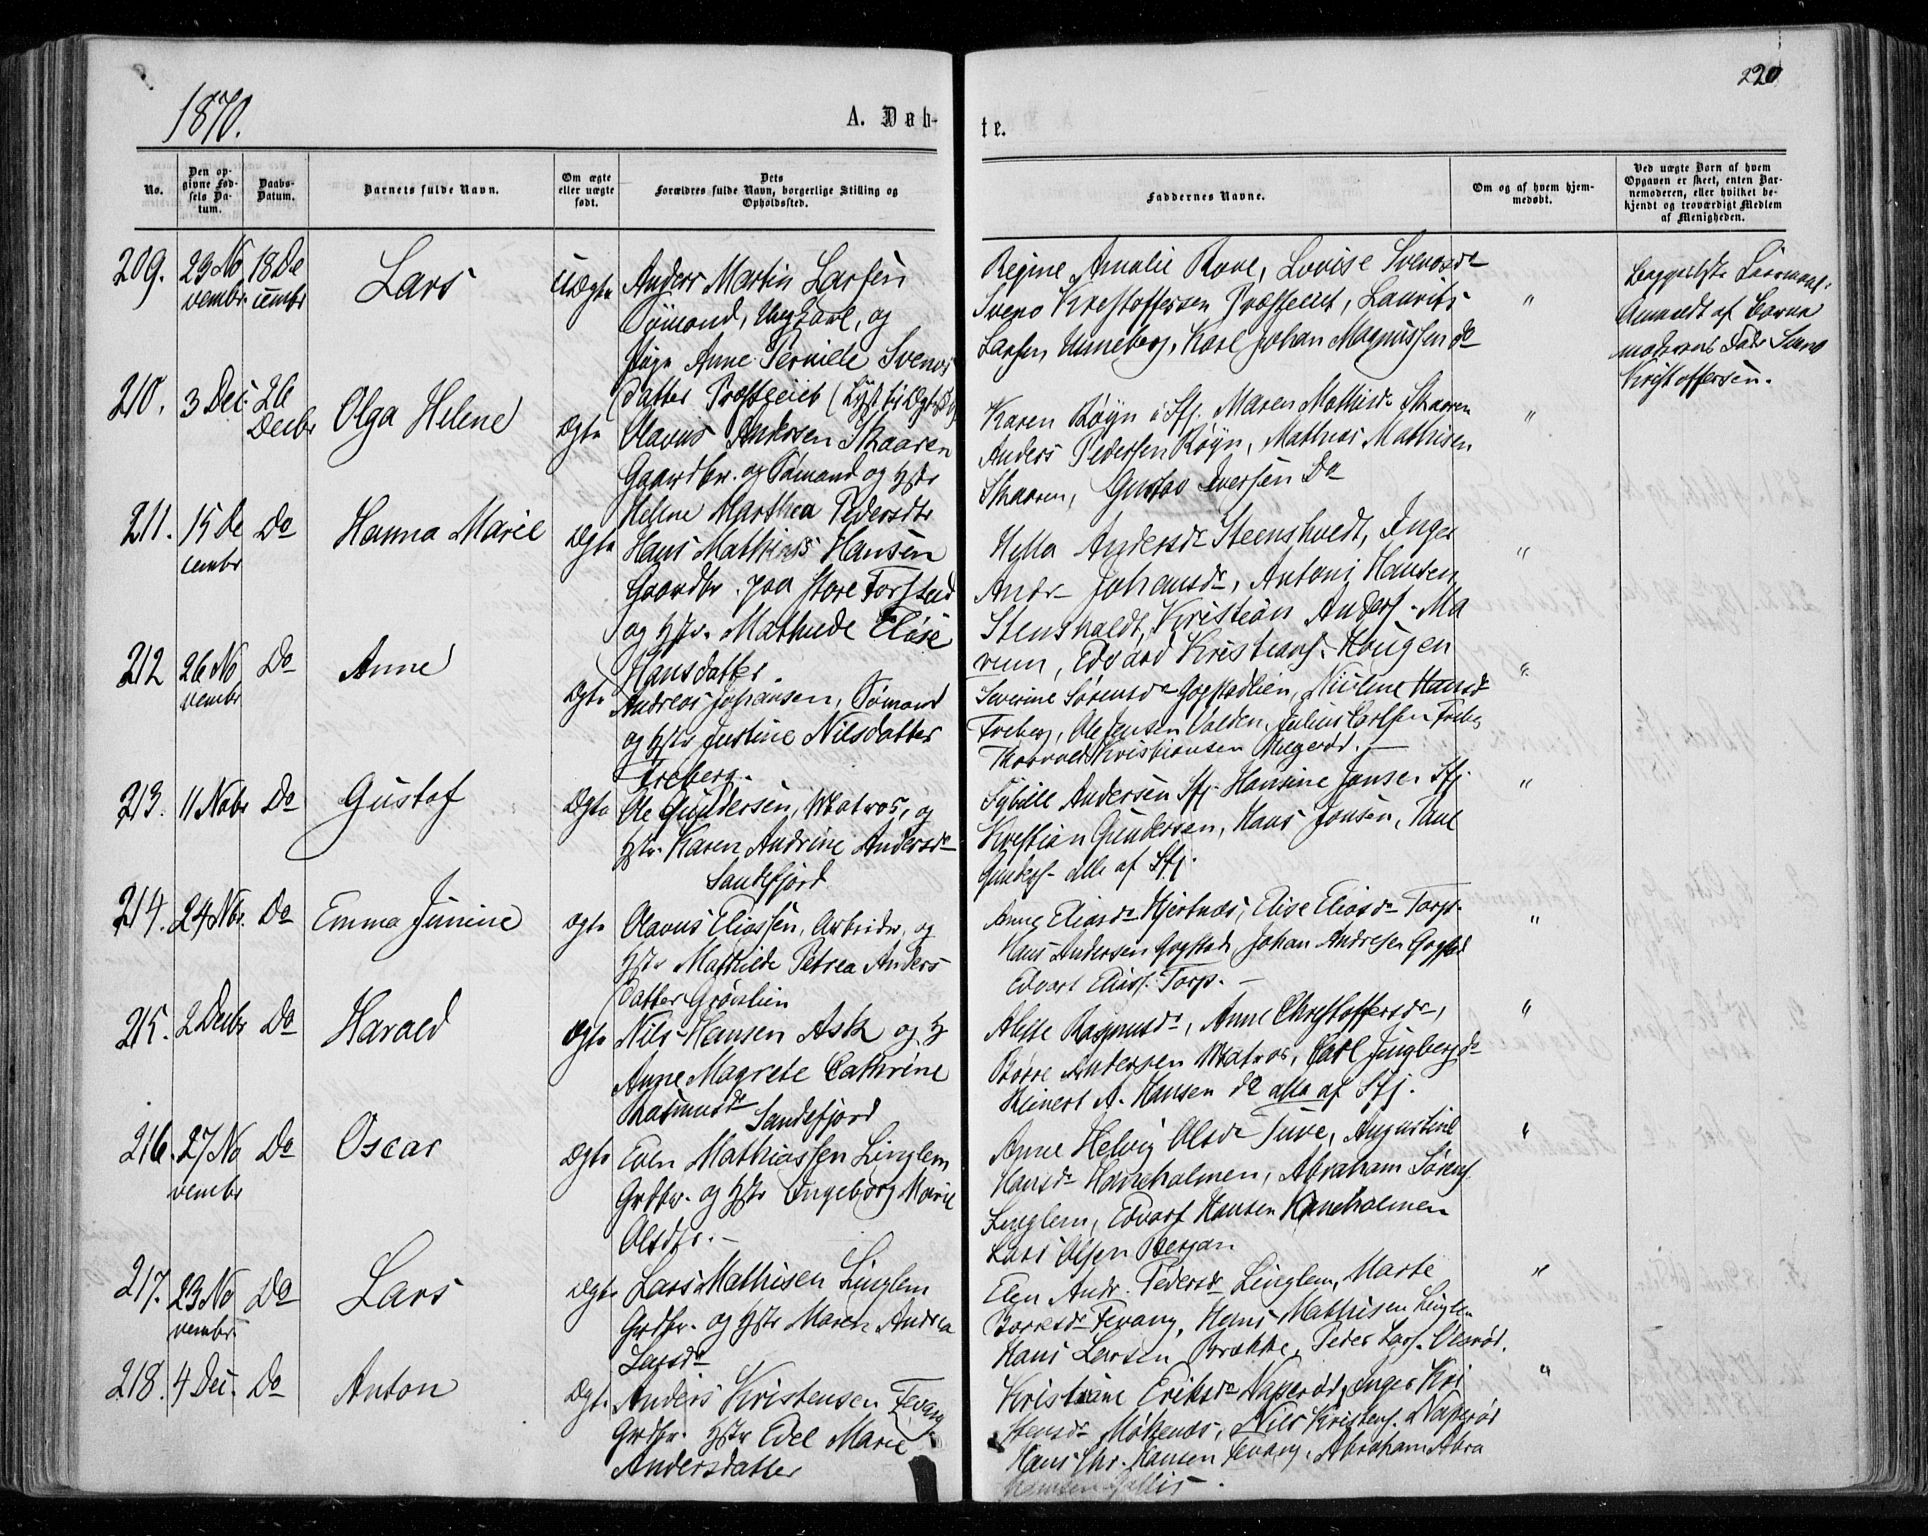 1870.
220
A. Døb-
te.
No.
Den op-
givne Fød-
sels Da-
tum.
Daabs-
Datum.
Barnets fulde Navn.
Om ægte
eller uægte
født.
Dets
Forældres fulde Navn, borgerlige Stilling og
Opholdssted.
Faddernes Navne.
Om og af hvem hjem-
medøbt.
Ved uægte Børn af hvem
Opgaven er skeet, enten Bar-
nemoderen, eller hvilket be-
kjendt og troværdigt Medlem
af Menigheden.
209. 29 No 18 De Lars Uægte Anders Martin Larsen
vembr cembr Sømand, Ungkarl, og
Pige Anne Pernille Svends
datter Præsteeiet
Regine Amalie Rove, Lovise Svendsdr
Svend Kristoffersen Præsteeiet, Laurits "
Larsen Unneberg, Karl Johan Magnussen do
Anmeldt af Barne
moderens Fader Svend
Kristoffersen.
210. 3 Dec. 26 Olga Helene Ægte Olavus Andersen Skaaren
Decbr Gaardbr. og Sømand og Hstr
Helene Marthea Pedersdtr
Karen Røyn i Sfj. Maren Mathisdr Skaaren "
Anders Pedersen Røyn, Mathias Mathisen
Skaaren, Gustav Iversen Do
211. 15 De Do Hanna Marie Ægte Hans Mathias Hansen
cembr Gaardbr. paa store Forstad
og Hstr. Mathilde Elise
Hansdatter.
Andersdr Steensholdt, Inger "
Andr Johansdr, Anton Hansen
Stensholdt, Kristian Anders. Ma
rum, Edvard Kristians. Haugen
212 26 No Do Anne Ægte Andreas Johansen, Sømand
vembr og Hstr Justine Nilsdatter
Freberg.
Severine Sørensdr Gogstadlien, Nicoline Hansdr "
Freberg, Ole Jensen Valden, Julius Carlsen Freberg
Thorvald Kristiansen
213. 11 Novbr Do Gustaf Ægte Ole Gundersen, Matros, og
Hstr. Karen Andrine Andersdr
Sandefjord
Sybille Andersen Sfj. Hansine Jansen Sfj. "
Kristian Gundersen, Hans Jonsen, Paul
Gunders. alle af Sfj.
214. 24 Nbr. Do Emma Junine Ægte Olavus Eliassen, Arbeider, og
Hstr Mathilde Petrea Anders
datter Grønlien
Anne Eliasdr Hjertnæs, Elise Eliasdr Torp. "
Hans Andersen Gogstad, Johan Andresen Gogstad
Edvart Elias. Torp.
215. 2 Decbr Do Harald Ægte Nils Hansen Ask og H
Anne Magrete Cathrine
Rasmusdr Sandefjord
Rasmusdr, Anne Christoffersdr, "
Børre Andersen Matros, Carl Jungberg do
Reinert A. Hansen do alle af Sfj.
216. 27 No Do Oscar Ægte Even Mathiassen Linglem
vembr Grdbr. og Hstr Ingeborg Marie
Olsdtr.
Anne Helvig Olsdr Tuve, Augustine "
Hansdr Haneholmen, Abraham Sørens.
Linglem, Edvart Hansen Haneholmen
Lars Olsen Berjan
217. 23 No Do Lars Ægte Lars Mathisen Linglem
vembr Grdbr. og Hstr Maren Andrea
Larsdr
Elen Andr. Pedersdr Linglem, Marte "
Borresdr Fevang, Hans Mathisen Linglem
Hans Larsen Brække, Peder Lars.
218. 4 Dec. Do Anton Ægte Anders Kristensen Fevang
Grdbr. Hstr Edel Marie
Andersdatter
Kristiane Eriksdr Naperød, Inger Kri "
stensdr Møkenæs, Nils Kristens. Naperød
Hans Chr. Hansen Fevang, Abraham Abra
hamsen